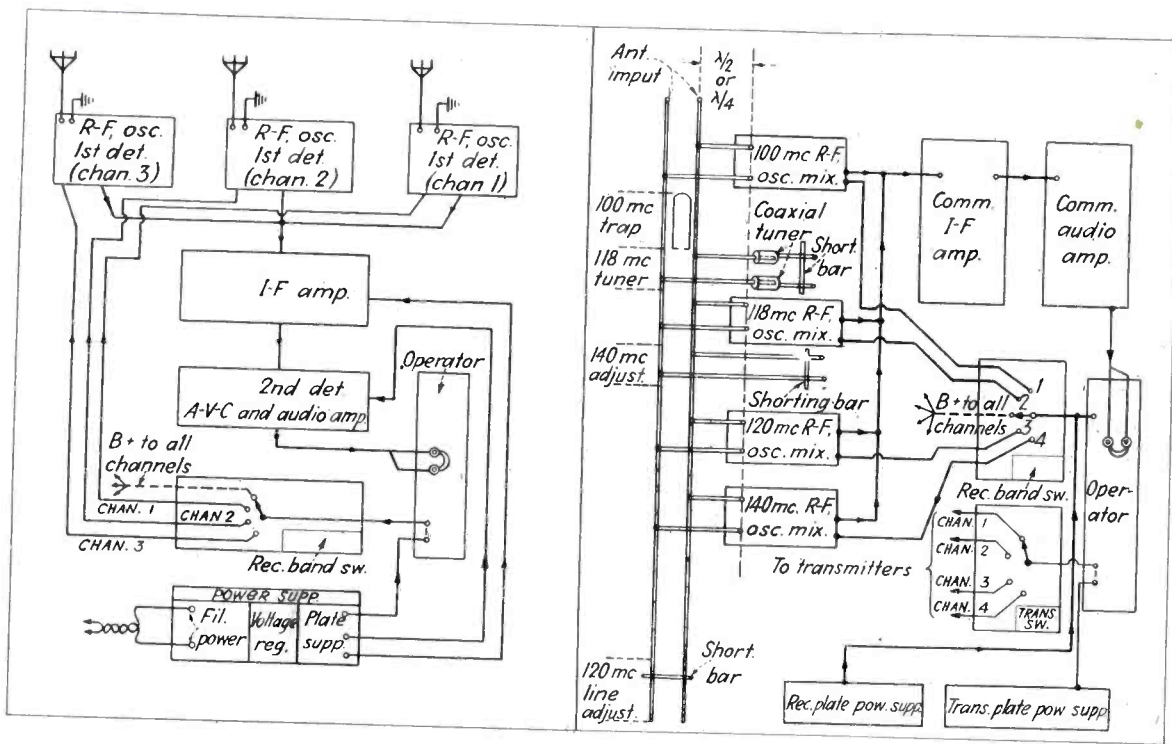 R-F, osc.
1st det.
(chan. 3)
R-F, osc.
1st det.
(chan. 2)
R-F, osc.
1st det.
(chan. 1)
I-F amp.
2nd det.
A-V-C and audio amp.
Operator
B+ to all
channels
CHAN. 1
CHAN 2
CHAN. 3
Rec. band sw.
POWER SUPP.
Fil.
power
Voltage
reg.
Plate
supp.
Ant.
imput
λ/2
or
λ/4
100 mc R-F,
osc. mix.
100 mc
trap
Coaxial
tuner
Short.
bar
118 mc
tuner
118 mc R-F,
osc. mix.
140 mc
adjust.
Shorting bar
120 mc R-F,
osc. mix.
140 mc. R-F,
osc. mix.
120 mc
line
adjust.
Short.
bar
Comm.
I-F
amp.
Comm.
audio
amp.
1
2
3
4
B+ to all
channels
Rec. band sw.
Oper-
ator
To transmitters
CHAN. 1
CHAN. 2
CHAN. 3
CHAN. 4
TRANS
SW.
Rec. plate pow. supp.
Trans. plate pow supp.